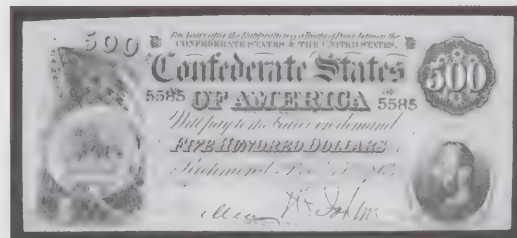 500
Two Years after the Ratification of a Treaty of Peace between the
CONFEDERATE STATES & THE UNITED STATES,
Confederate States
500
5585 OF AMERICA 5585
Will pay to the bearer on demand
FIVE HUNDRED DOLLARS
Richmond